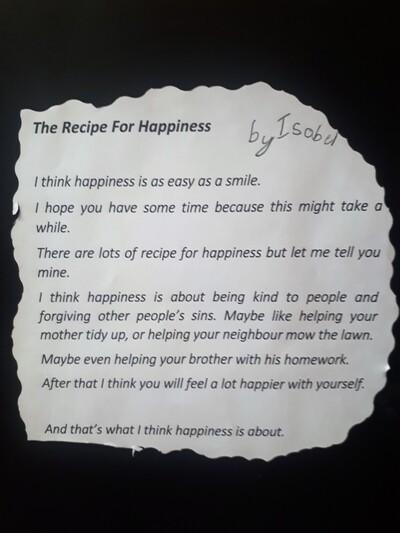 The Recipe For Happiness
by Isobel
I think happiness is as easy as a smile.
I hope you have some time because this might take a
while.
There are lots of recipe for happiness but let me tell you
mine.
I think happiness is about being kind to people and
forgiving other people's sins. Maybe like helping your
mother tidy up, or helping your neighbour mow the lawn.
Maybe even helping your brother with his homework.
After that I think you will feel a lot happier with yourself.
And that's what I think happiness is about.